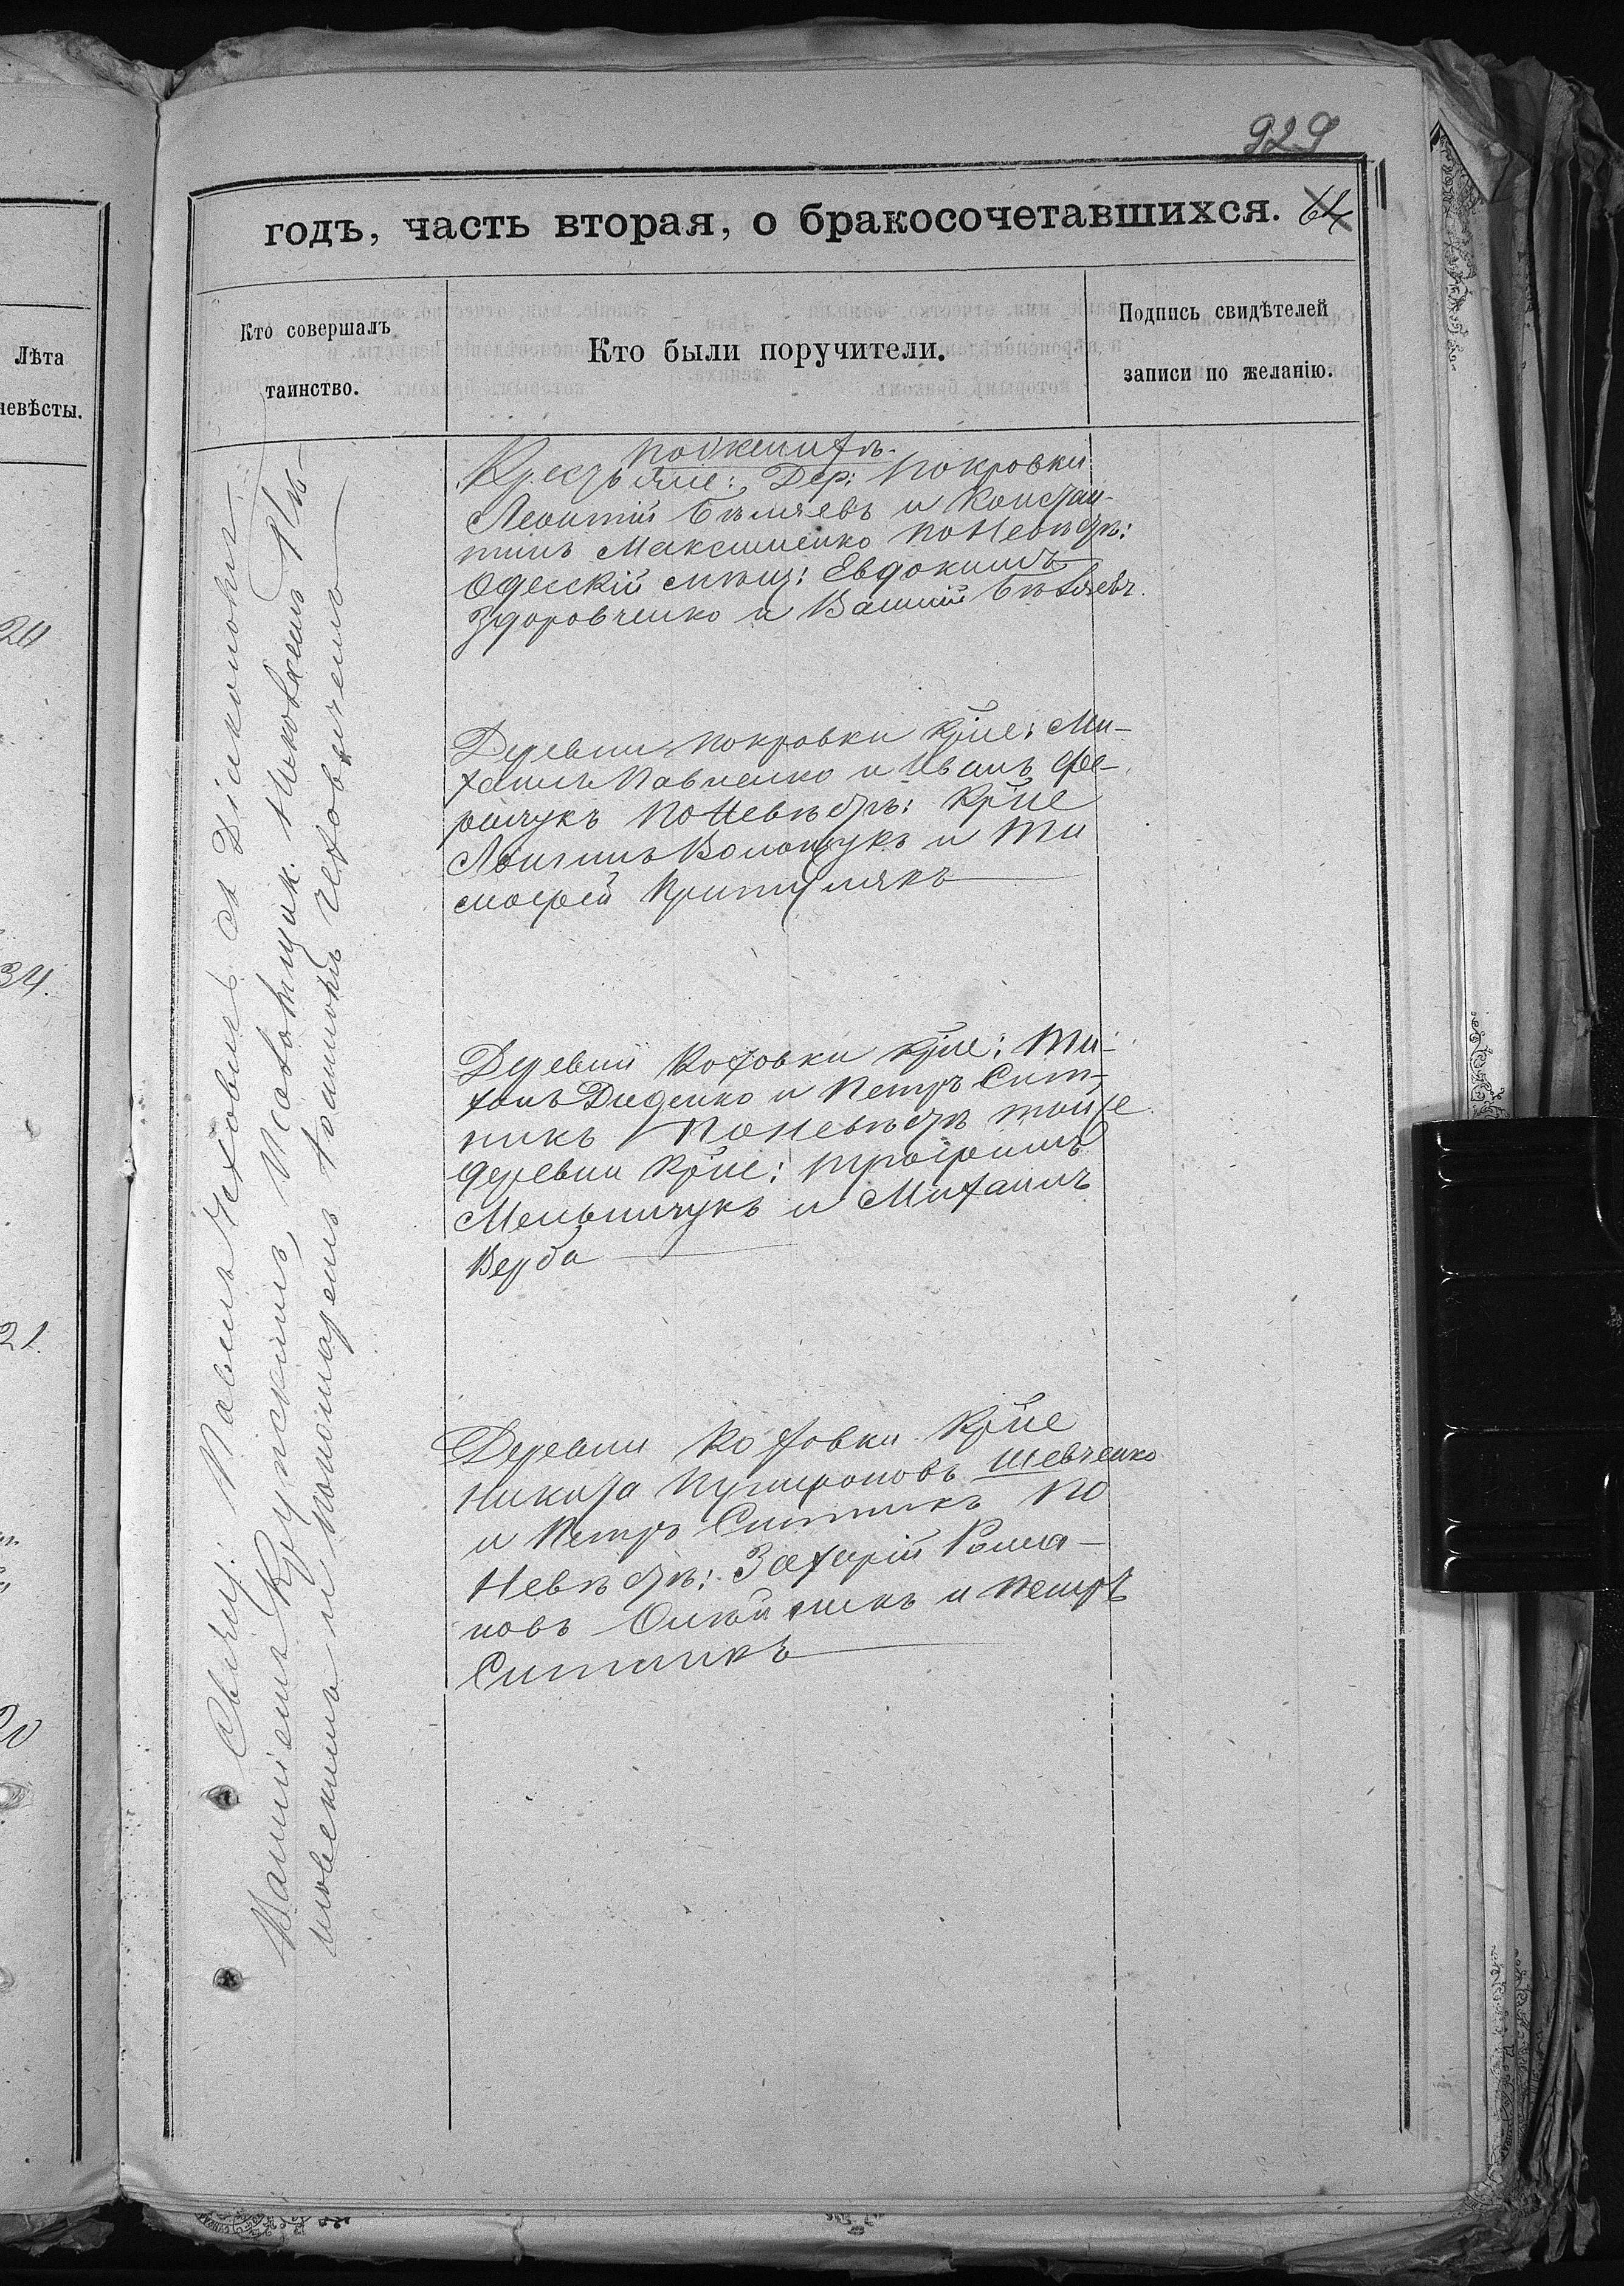 929
годъ, часть вторая, о бракосочетавшихся. 64
Лѣта
невѣсты.
Кто совершалъ
таинство.
Кто были поручители.
Подпись свидѣтелей
записи по желанію.
24
34.
21.
20
Свящ: Павелъ Чеховичъ съ Діакономъ
Василіемъ Крупскимъ,
и пономаремъ Чеховичемъ
По женихѣ
Крестьяне: Дер: Покровки
Леонтій Бѣляевъ и Констан-
тинъ Максименко по Невѣстѣ:
Одесскій мѣщ: Евдокимъ
Здоровченко и Василій Бѣляевъ.
Деревни Покровки Крне: Ми-
хаилъ Павленко и Иванъ Фе-
рашукъ По Невѣстѣ: Крне
Лонгинъ Волощукъ и Ти
мофей Притулякъ
Деревни Котовки крне: Ти-
хонъ Диденко и Петръ Сит-
никъ По Невѣстѣ тойже
деревни Крне: Трофимъ
Мельничукъ и Михаилъ
Верба
Деревни Котовки Крне
Никита Шевченко
и Петръ Ситникъ По
Невѣстѣ: Захарій Рома-
новъ Олѣйникъ и Петръ
Ситникъ